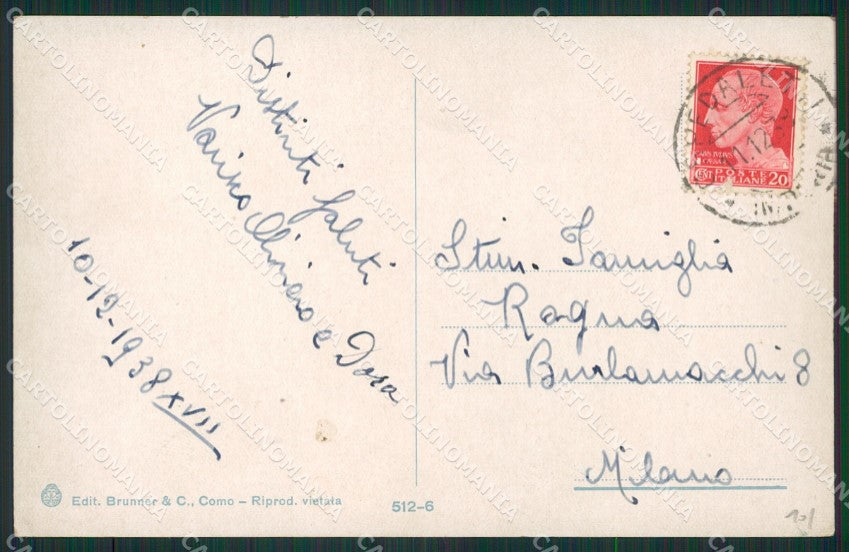 Distinti saluti
Olimpio e Dora
10-12-1938 XVII
Stim. Famiglia
Ragna
Via Burlamacchi 8
Milano
POSTE
ITALIANE
CENT 20
Edit. Brunner & C., Como – Riprod. vietata
512-6
CARTOLINOMANIA